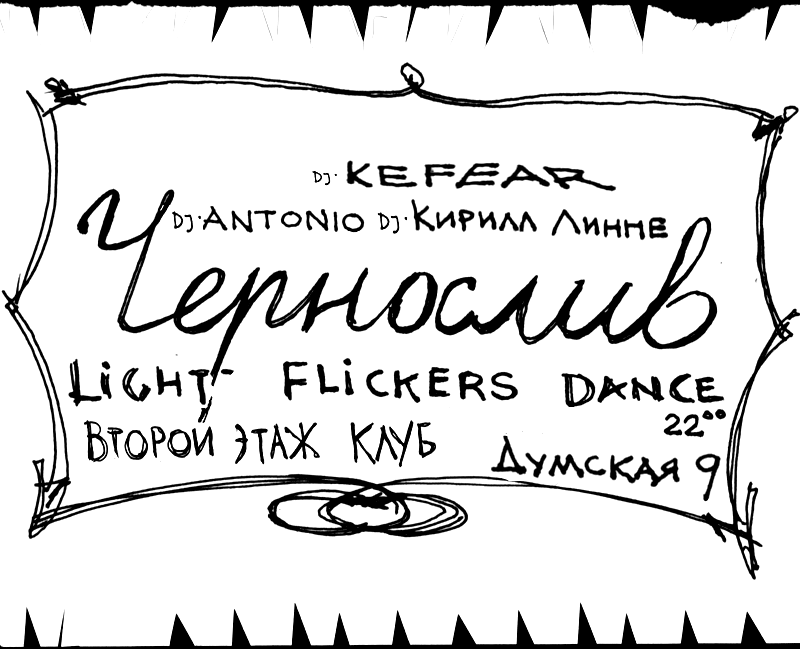 DJ· KEFEAR
DJ·ANTONIO DJ·Кирилл Линне
Чернослив
LiGHT FLiCKERS DANCE
22⁰⁰
Второй этаж клуб
Думская 9